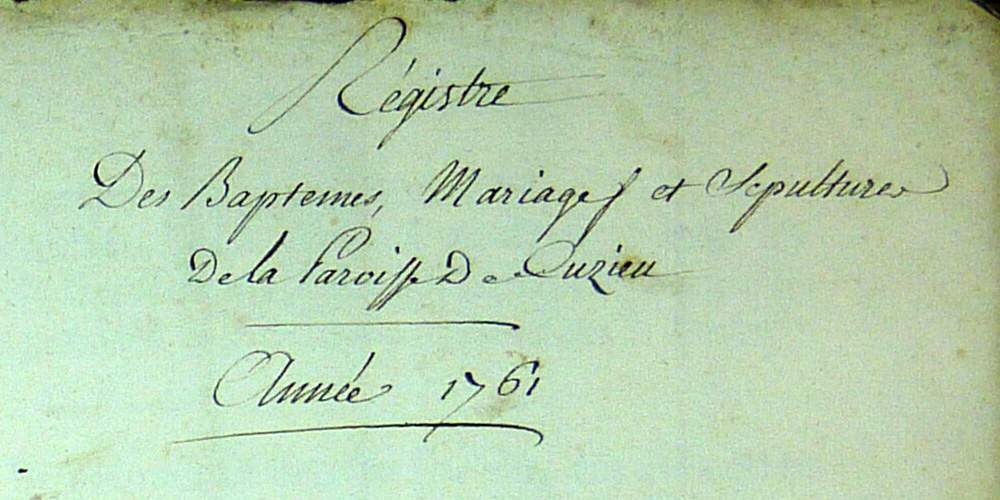 Régistre
Des Baptemes, Mariages et Sepultures
De la Paroisse De Cuzieu
Année 1761